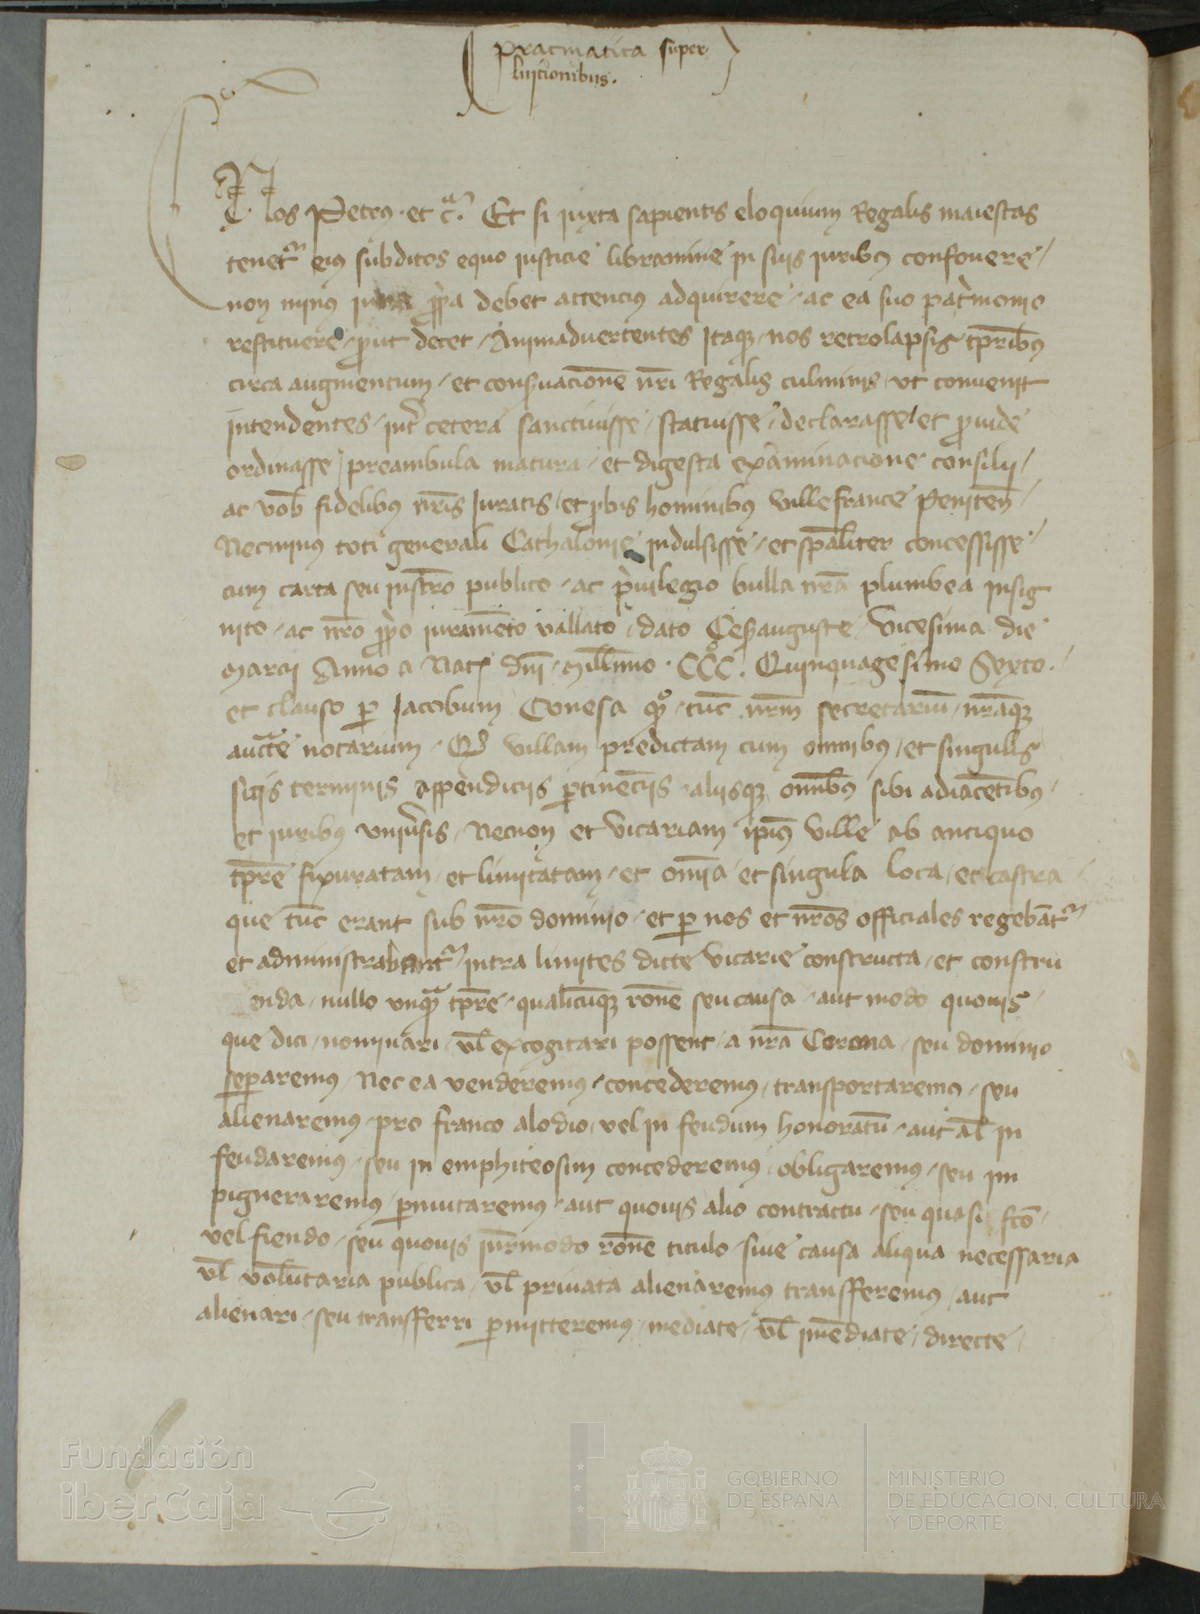 pracmatica super
luicionibus.
Nos Petrus. et cª. Et si iuxta sapientis eloquium Regalis maiestas
tenetʳ eius subditos equo iusticie libramine in suis iuribꝯ confouere /
non minus iura ꝓpa debet attencius adquirere / ac ea suo patrimonio
restituere / ꝓut decet / Animaduertentes Itaqꝫ nos retrolapsis tp̄ribꝯ
circa augmentum / et conẜuacionē nr̄i Regalis culminis / ut conuenit
intendentes / int̄ cetera sanctiuisse / statuisse / declarasse / et ꝓuide
ordinasse / preambula matura / et digesta examinacione consilij /
ac vob̄ fidelibꝯ nr̄is Iuratis / et ꝓbis hominibꝯ Villefrance Peniteñ /
Necminus toti generali Cathalonie indulsisse / et sp̄aliter concessisse
cum carta seu instr̄o publico / ac p̄uilegio bulla nr̄a plumbea insig
nito / ac nr̄o ꝓpo iuramēto vallato / dato Cesꝛauguste / Vicesima die
Marcij Anno a Natꝭ dn̄i Mill̄imo . CCCº. Quinquagesimo Sexto. /
et clauso ꝑ Iacobum Conesa qº tūc nr̄m secretariū / nr̄amqꝫ
auctē notarium / Qđ villam predictam cum omnibꝯ / et singulis
suis terminis appendiciis ꝑtinēciis / aliisqꝫ omībꝯ sibi adiacētibꝯ /
et iuribꝯ vniuˀsis / Necnon et vicariam ip̄iꝯ ville ab antiquo
tp̄re fixuratam / et limitatam / et om̄ia et singula loca / et castra /
que tūc erant sub nr̄o dominio / et ꝑ nos et nr̄os officiales regebātʳ
et administrabantʳ / intra limites dicte vicarie constructa / et constru
enda / nullo vnqª tp̄re / qualicūqꝫ rōne seu causa / aut modo quouis /
que dici / nominari / vl̄ excogitari possent / a nr̄a Corona / seu dominio
seꝑaremus / Nec ea venderemus / concederemus / transportaremꝯ / seu
alienaremus / pro franco alodio / vel in feudum honoratū / aut al̄ in
feudaremus / seu in emphiteosim concederemus / obligaremus / seu im
pigneraremus / ꝑmutaremus / aut quouis alio contractu / seu quasi fc̄o /
vel fiendo / seu quouis iur̄modo rōne titulo siue causa aliqua necessaria
vl̄ volūtaria publica / vl̄ priuata alienaremus transfferemus / aut
alienari / seu transfferri ꝑmitteremus / mediate / vl̄ imēdiate / directe /
Fundación
iberCaja
GOBIERNO
DE ESPAÑA
MINISTERIO
DE EDUCACIÓN, CULTURA
Y DEPORTE